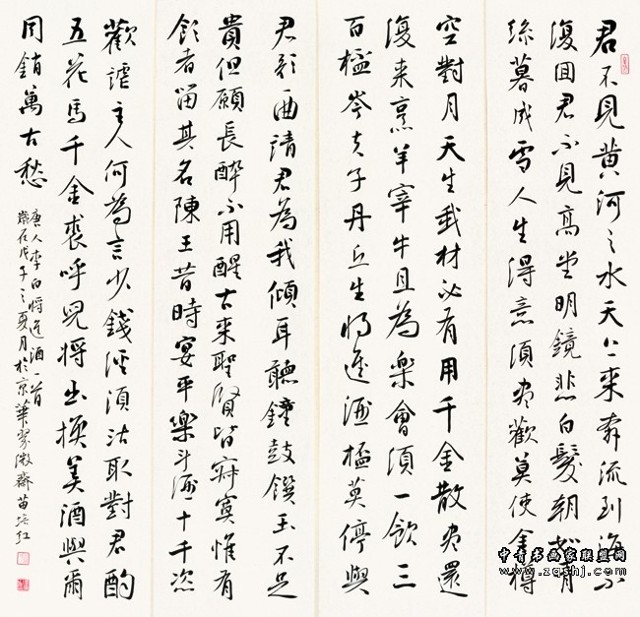 君不見黃河之水天上來奔流到海不
復回君不見高堂明鏡悲白髮朝如青
絲暮成雪人生得意須盡歡莫使金樽
空對月天生我材必有用千金散盡還
復來烹羊宰牛且為樂會須一飲三
百桮岑夫子丹丘生將進酒桮莫停與
君歌一曲請君為我傾耳聽鐘鼓饌玉不足
貴但願長醉不用醒古來聖賢皆寂寞惟有
飲者留其名陳王昔時宴平樂斗酒十千恣
歡謔主人何為言少錢徑須沽取對君酌
五花馬千金裘呼兒將出換美酒與爾
同銷萬古愁
唐人李白將進酒一首
歲在戊子之夏月於京華翠微齋苗培红
中青书画家联盟网
www.zqshj.com